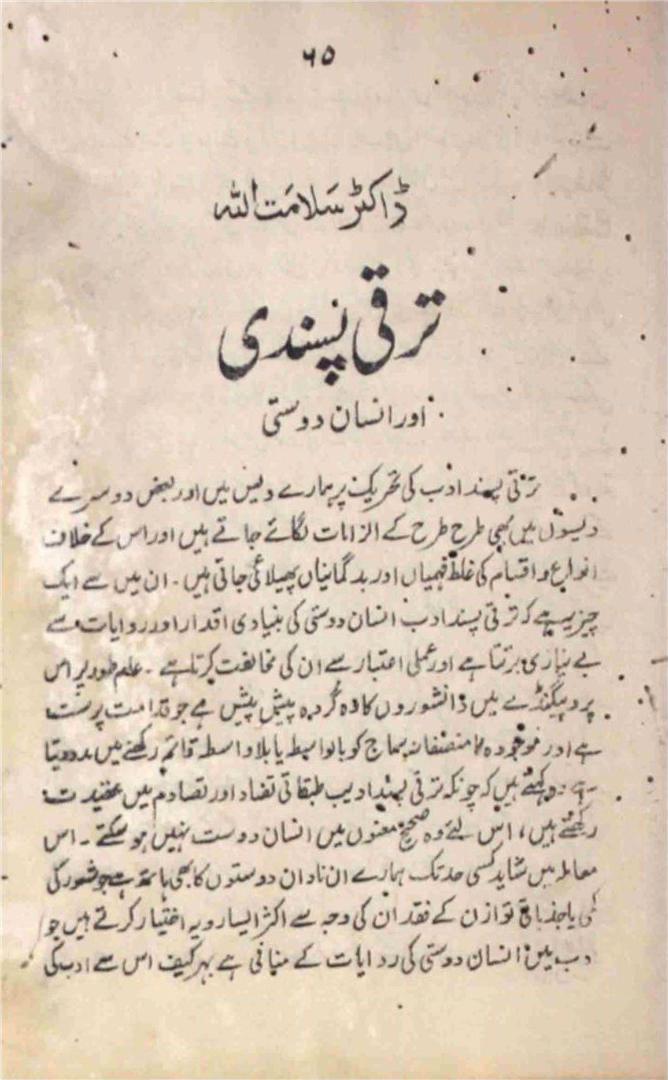 ۶۵
ڈاکٹر سلامت اللہ
ترقی پسندی
اور انسان دوستی
ترقی پسند ادب کی تحریک پر ہمارے دیس میں اور بعض دوسرے
دیسوں میں بھی طرح طرح کے الزامات لگائے جاتے ہیں اور اس کے خلاف
انواع و اقسام کی غلط فہمیاں اور بدگمانیاں پھیلائی جاتی ہیں۔ ان میں سے ایک
چیز یہ ہے کہ ترقی پسند ادب انسان دوستی کی بنیادی اقدار اور روایات سے
بے نیازی برتتا ہے اور عملی اعتبار سے ان کی مخالفت کرتا ہے۔ عام طور پر اس
پروپیگنڈے میں دانشوروں کا وہ گروہ پیش پیش ہے جو قدامت پرست
ہے اور موجودہ نا منصفانہ سماج کو بالواسطہ یا بلاواسطہ قائم رکھنے میں مدد دیتا
ہے۔ وہ کہتے ہیں کہ چونکہ ترقی پسند ادیب طبقاتی تضاد اور تصادم میں عقیدت
رکھتے ہیں، اس لئے وہ صحیح معنوں میں انسان دوست نہیں ہو سکتے۔ اس
معاملہ میں شاید کسی حد تک ہمارے ان نادان دوستوں کا بھی ہاتھ ہے جو شعور کی
کمی یا جذباتی توازن کے فقدان کی وجہ سے اکثر ایسا رویہ اختیار کرتے ہیں جو
دب میں انسان دوستی کی روایات کے منافی ہے بہر کیف اس سے ادب کی